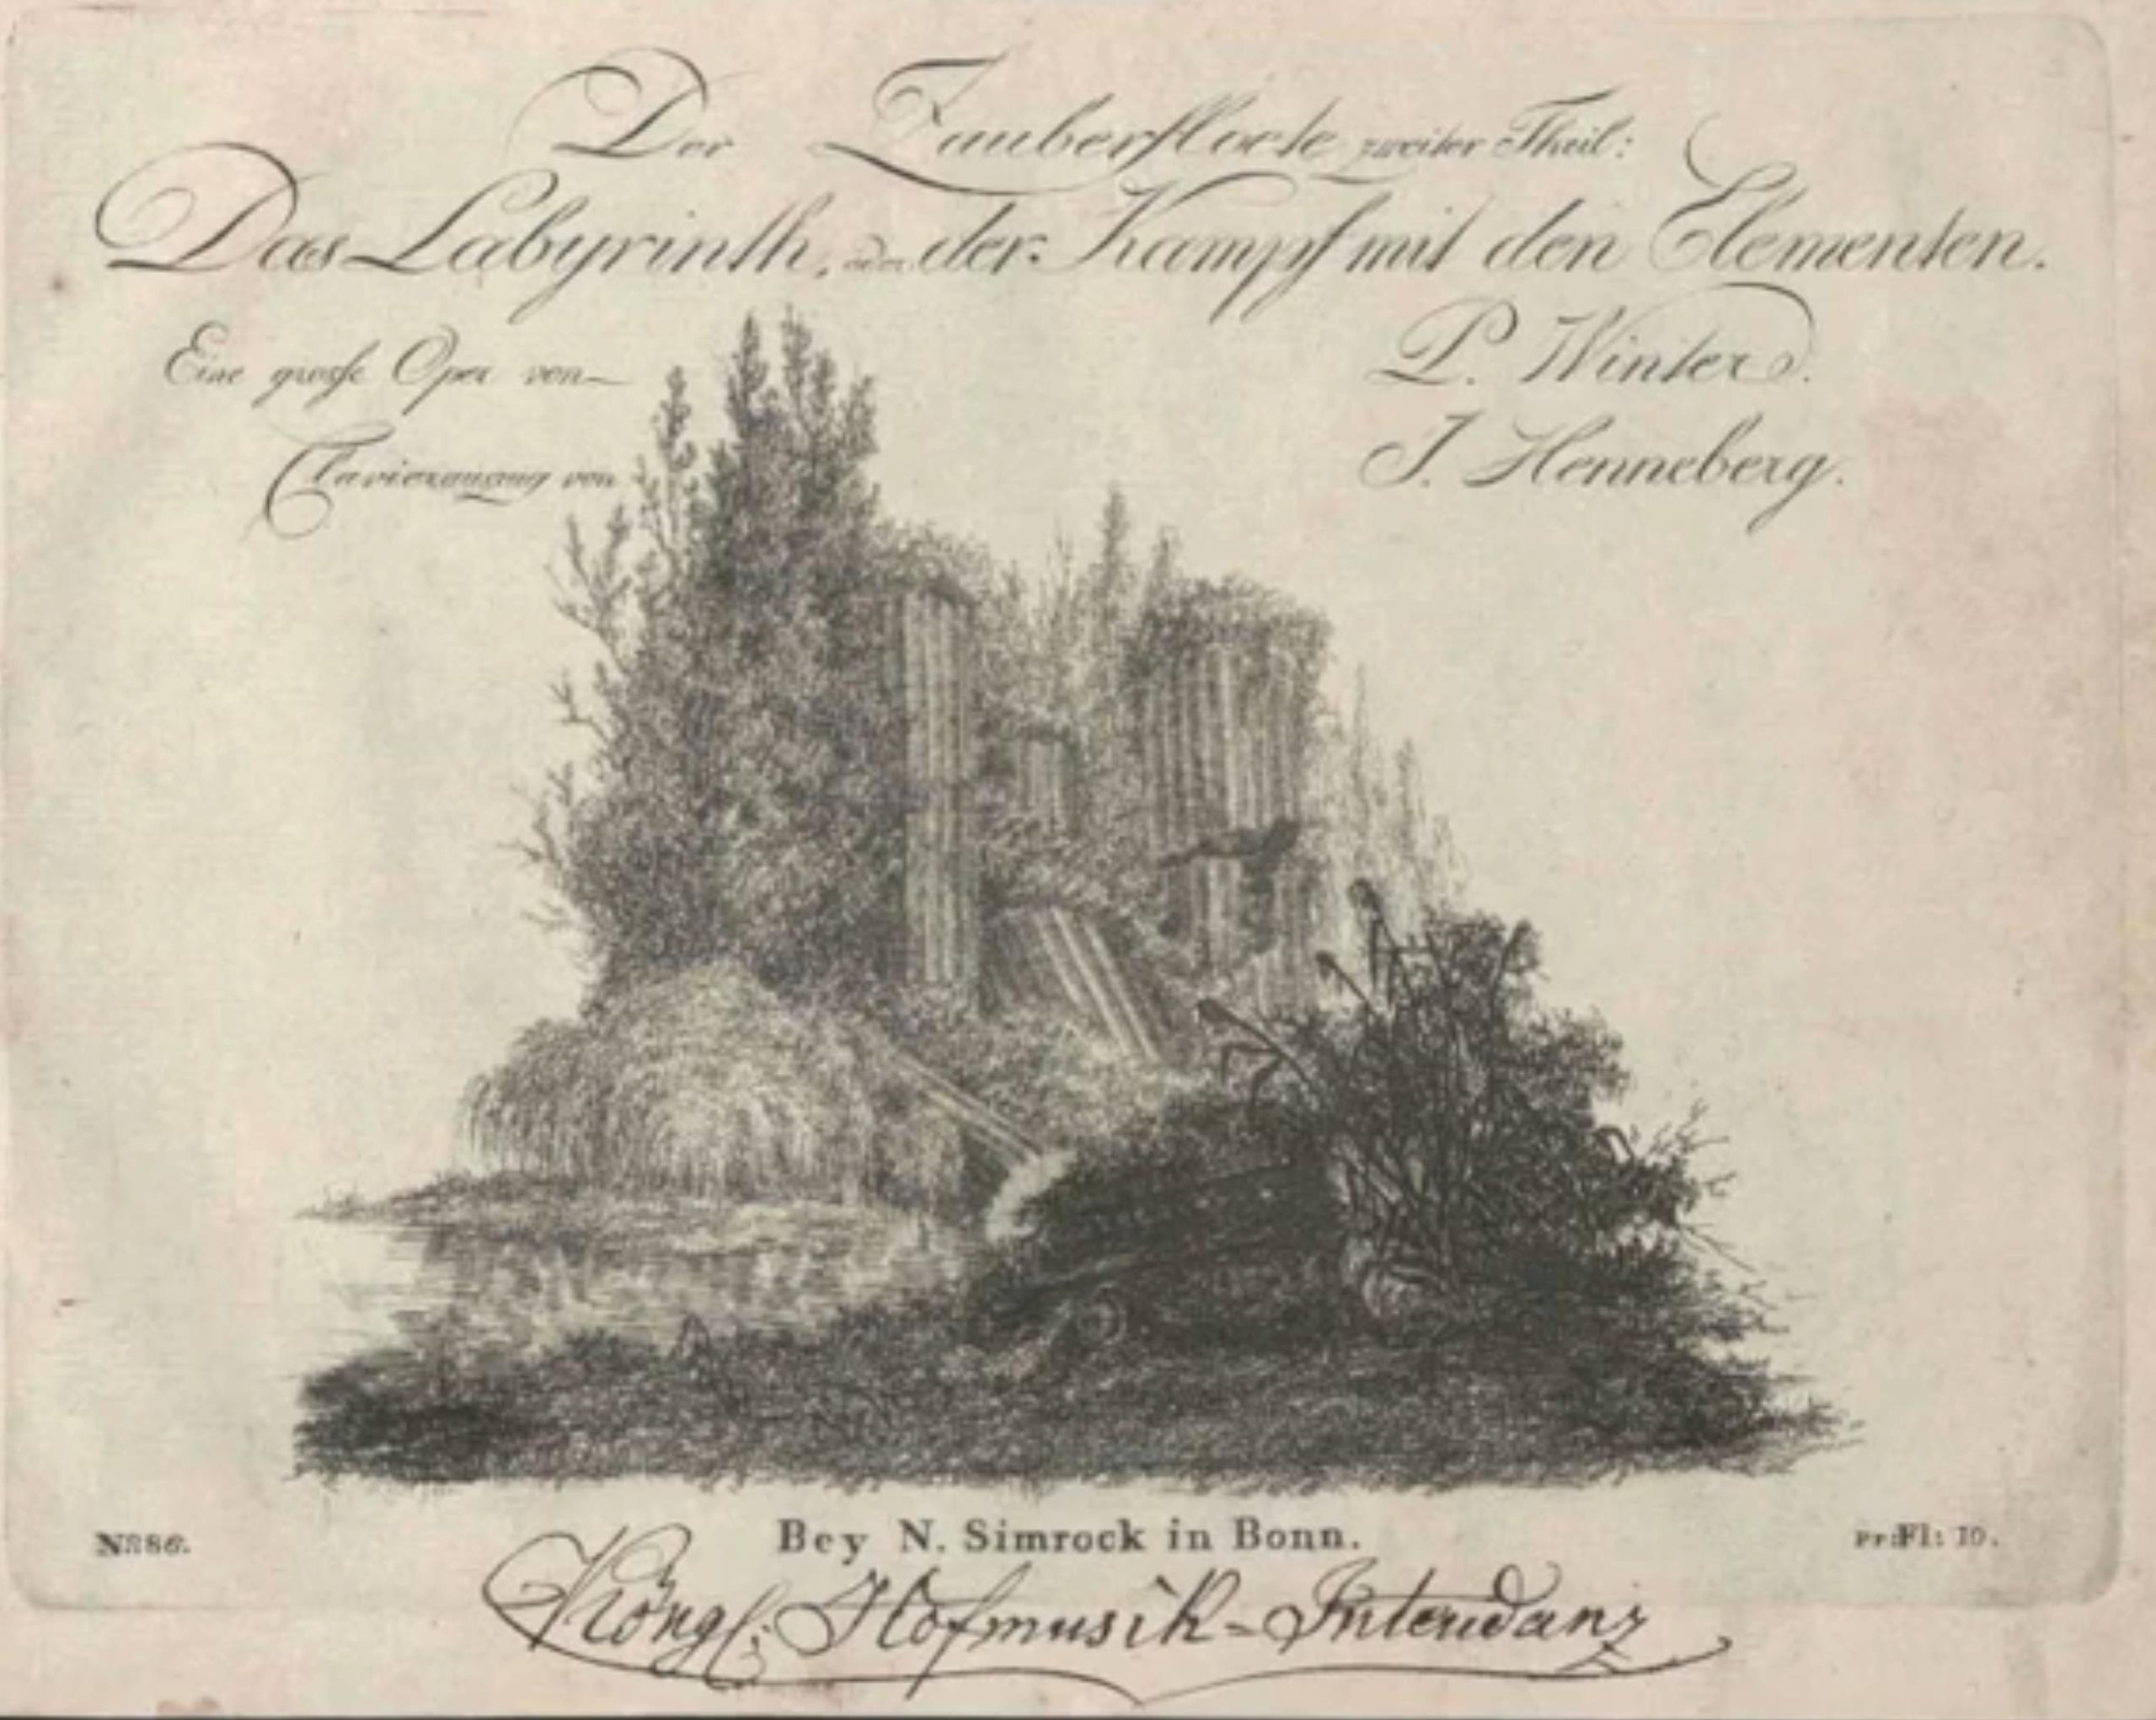 Der Zauberfloete zweiter Theil:
Das Labyrinth, oder der Kampf mit den Elementen.
Eine große Oper von P. Winter.
Clavierauszug von J. Henneberg.
Bey N. Simrock in Bonn.
No. 86. Pr: Fl: 10.
Königl: Hofmusik-Intendanz